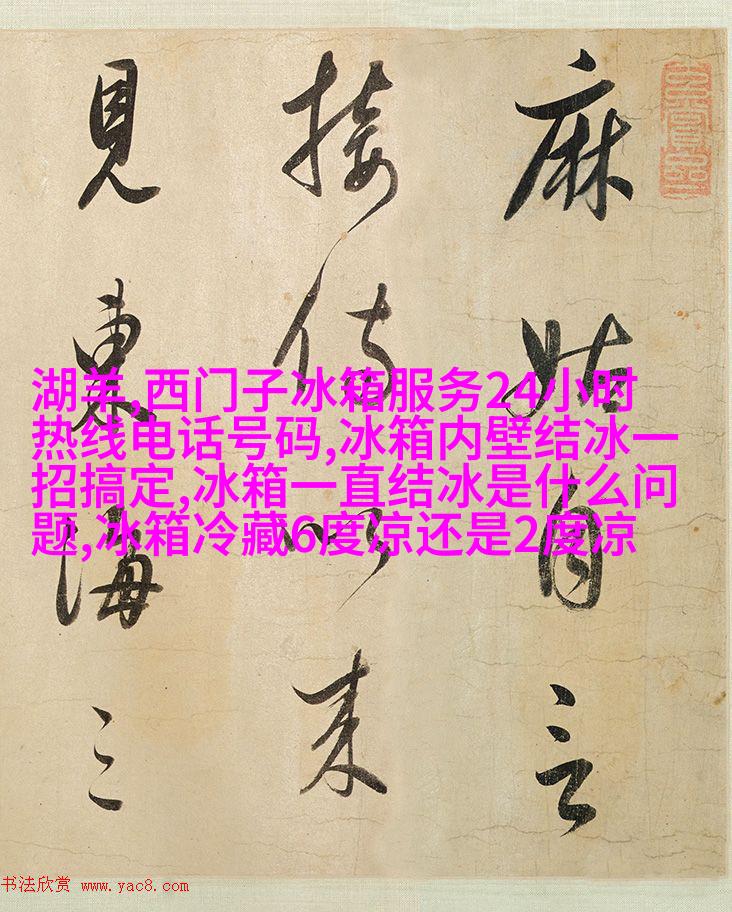 麻姑自言
接侍以来
見東海三
湖羊,西门子冰箱服务24小时
热线电话号码,冰箱内壁结冰一
招搞定,冰箱一直结冰是什么问
题,冰箱冷藏6度凉还是2度凉
书法欣赏 www.yac8.com